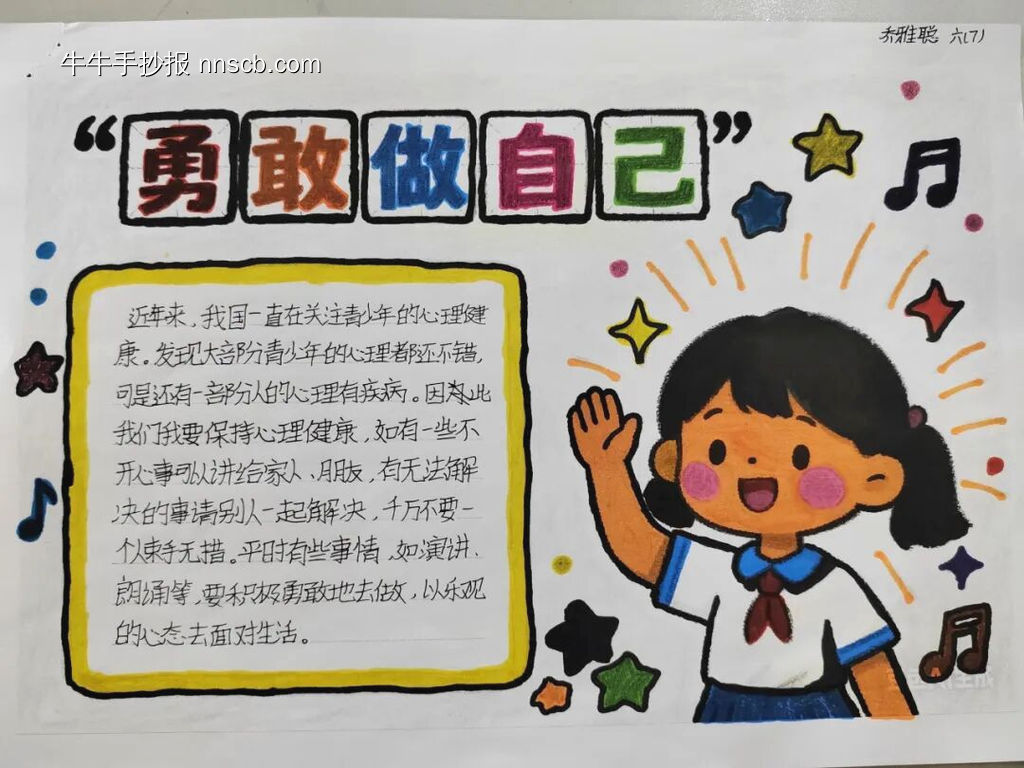 乔雅聪 六(7)
牛牛手抄报 nnscb.com
“勇敢做自己”
近年来，我国一直在关注青少年的心理健
康。发现大部分青少年的心理都还不错，
可是还有一部分人的心理有疾病。因为此
我们我要保持心理健康，如有一些不
开心事可以讲给家人、朋友，有无法解
决的事请别人一起解决，千万不要一
个人束手无措。平时有些事情，如演讲、
朗诵等，要积极勇敢地去做，以乐观
的心态去面对生活。